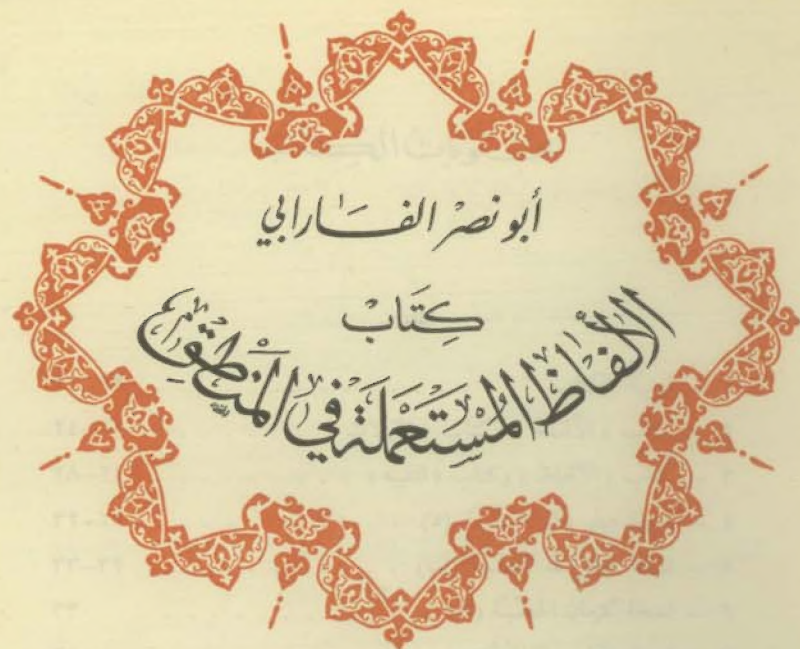 أبو نصْر الفَارابي
كِتَابْ
الألفاظ المُستَعمَلة في المَنطِق